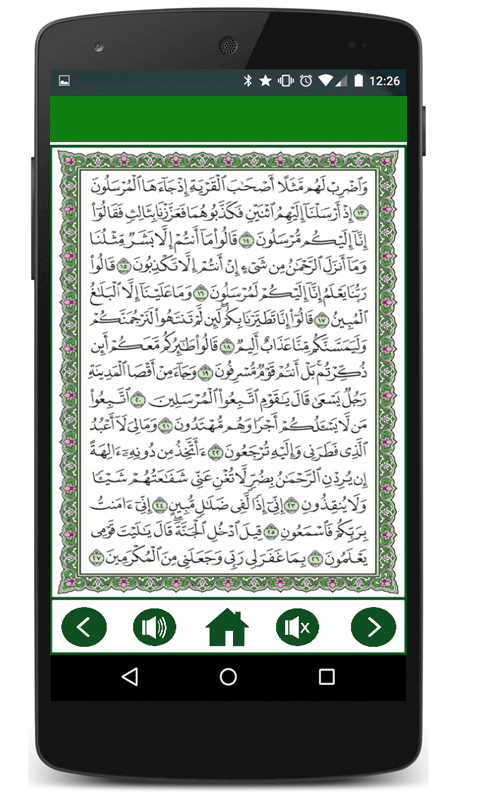 12:26
وَٱضْرِبْ لَهُم مَّثَلًا أَصْحَٰبَ ٱلْقَرْيَةِ إِذْ جَآءَهَا ٱلْمُرْسَلُونَ
١٣ إِذْ أَرْسَلْنَآ إِلَيْهِمُ ٱثْنَيْنِ فَكَذَّبُوهُمَا فَعَزَّزْنَا بِثَالِثٍ فَقَالُوٓا۟
إِنَّآ إِلَيْكُم مُّرْسَلُونَ ١٤ قَالُوا۟ مَآ أَنتُمْ إِلَّا بَشَرٌ مِّثْلُنَا
وَمَآ أَنزَلَ ٱلرَّحْمَٰنُ مِن شَىْءٍ إِنْ أَنتُمْ إِلَّا تَكْذِبُونَ ١٥ قَالُوا۟
رَبُّنَا يَعْلَمُ إِنَّآ إِلَيْكُمْ لَمُرْسَلُونَ ١٦ وَمَا عَلَيْنَآ إِلَّا ٱلْبَلَٰغُ
ٱلْمُبِينُ ١٧ قَالُوٓا۟ إِنَّا تَطَيَّرْنَا بِكُمْ لَئِن لَّمْ تَنتَهُوا۟ لَنَرْجُمَنَّكُمْ
وَلَيَمَسَّنَّكُم مِّنَّا عَذَابٌ أَلِيمٌ ١٨ قَالُوا۟ طَٰٓئِرُكُم مَّعَكُمْ أَئِن
ذُكِّرْتُم بَلْ أَنتُمْ قَوْمٌ مُّسْرِفُونَ ١٩ وَجَآءَ مِنْ أَقْصَا ٱلْمَدِينَةِ
رَجُلٌ يَسْعَىٰ قَالَ يَٰقَوْمِ ٱتَّبِعُوا۟ ٱلْمُرْسَلِينَ ٢٠ ٱتَّبِعُوا۟
مَن لَّا يَسْـَٔلُكُمْ أَجْرًا وَهُم مُّهْتَدُونَ ٢١ وَمَالِىَ لَآ أَعْبُدُ
ٱلَّذِى فَطَرَنِى وَإِلَيْهِ تُرْجَعُونَ ٢٢ ءَأَتَّخِذُ مِن دُونِهِۦٓ ءَالِهَةً
إِن يُرِدْنِ ٱلرَّحْمَٰنُ بِضُرٍّ لَّا تُغْنِ عَنِّى شَفَٰعَتُهُمْ شَيْـًٔا
وَلَا يُنقِذُونِ ٢٣ إِنِّىٓ إِذًا لَّفِى ضَلَٰلٍ مُّبِينٍ ٢٤ إِنِّىٓ ءَامَنتُ
بِرَبِّكُمْ فَٱسْمَعُونِ ٢٥ قِيلَ ٱدْخُلِ ٱلْجَنَّةَ قَالَ يَٰلَيْتَ قَوْمِى
يَعْلَمُونَ ٢٦ بِمَا غَفَرَ لِى رَبِّى وَجَعَلَنِى مِنَ ٱلْمُكْرَمِينَ ٢٧